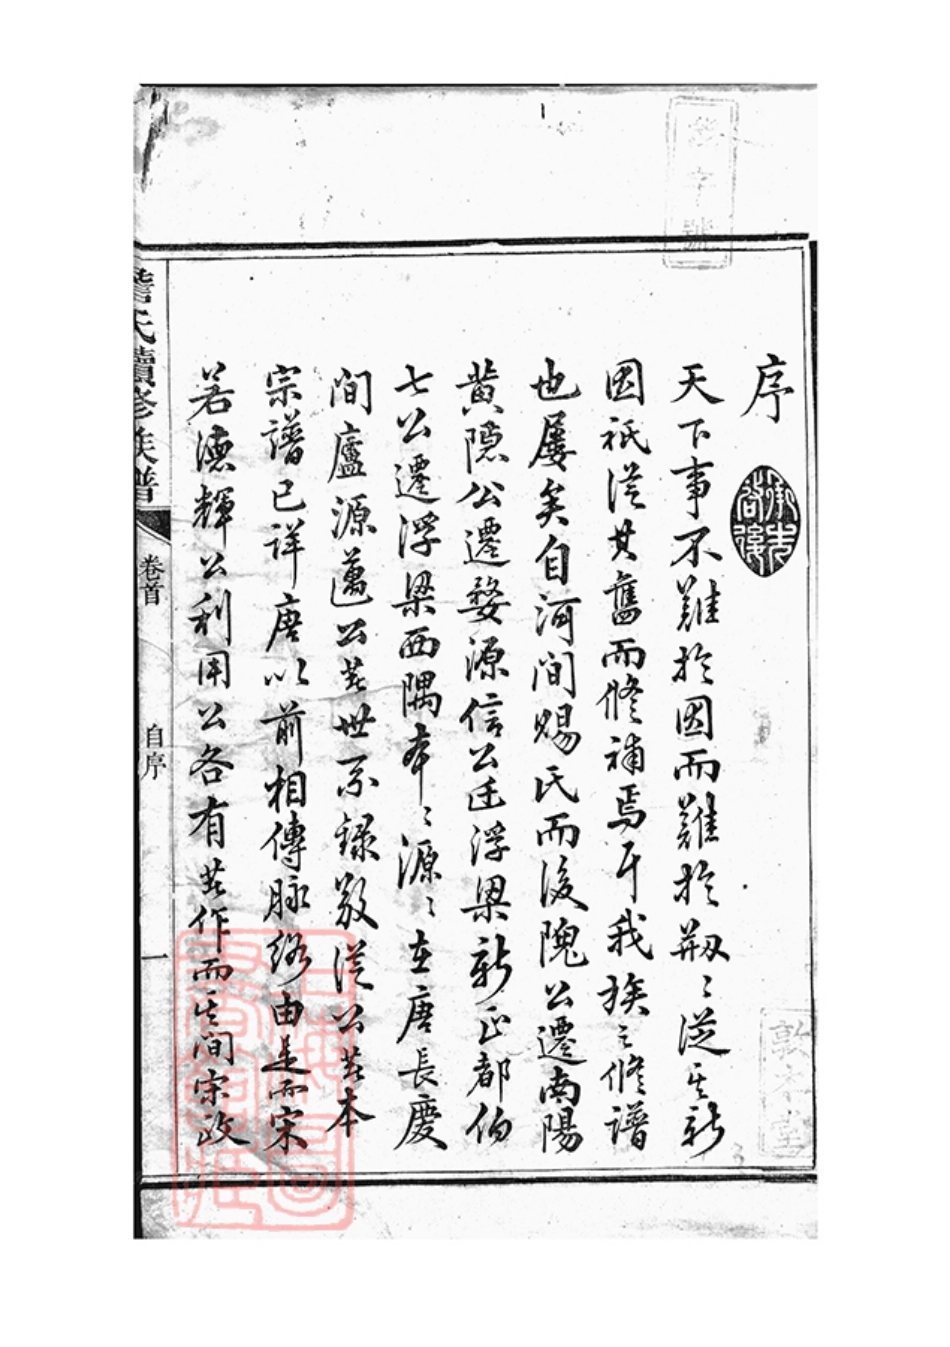 序
承先啟後
天下事不難於因而難於剏剏從其新
因祇從其舊而修補焉耳我族之修譜
也屢矣自河間賜氏而後隗公遷南陽
黃隱公遷婺源信公迁浮梁新正都伯
七公遷浮梁西隅本本源源在唐長慶
間廬源邁公若世系錄敬從公若本
宗譜已詳唐以前相傳脉絡由是而宋
若德輝公利用公各有若作而其間宋政
詹氏續修族譜
卷首
自序
一
敦本堂